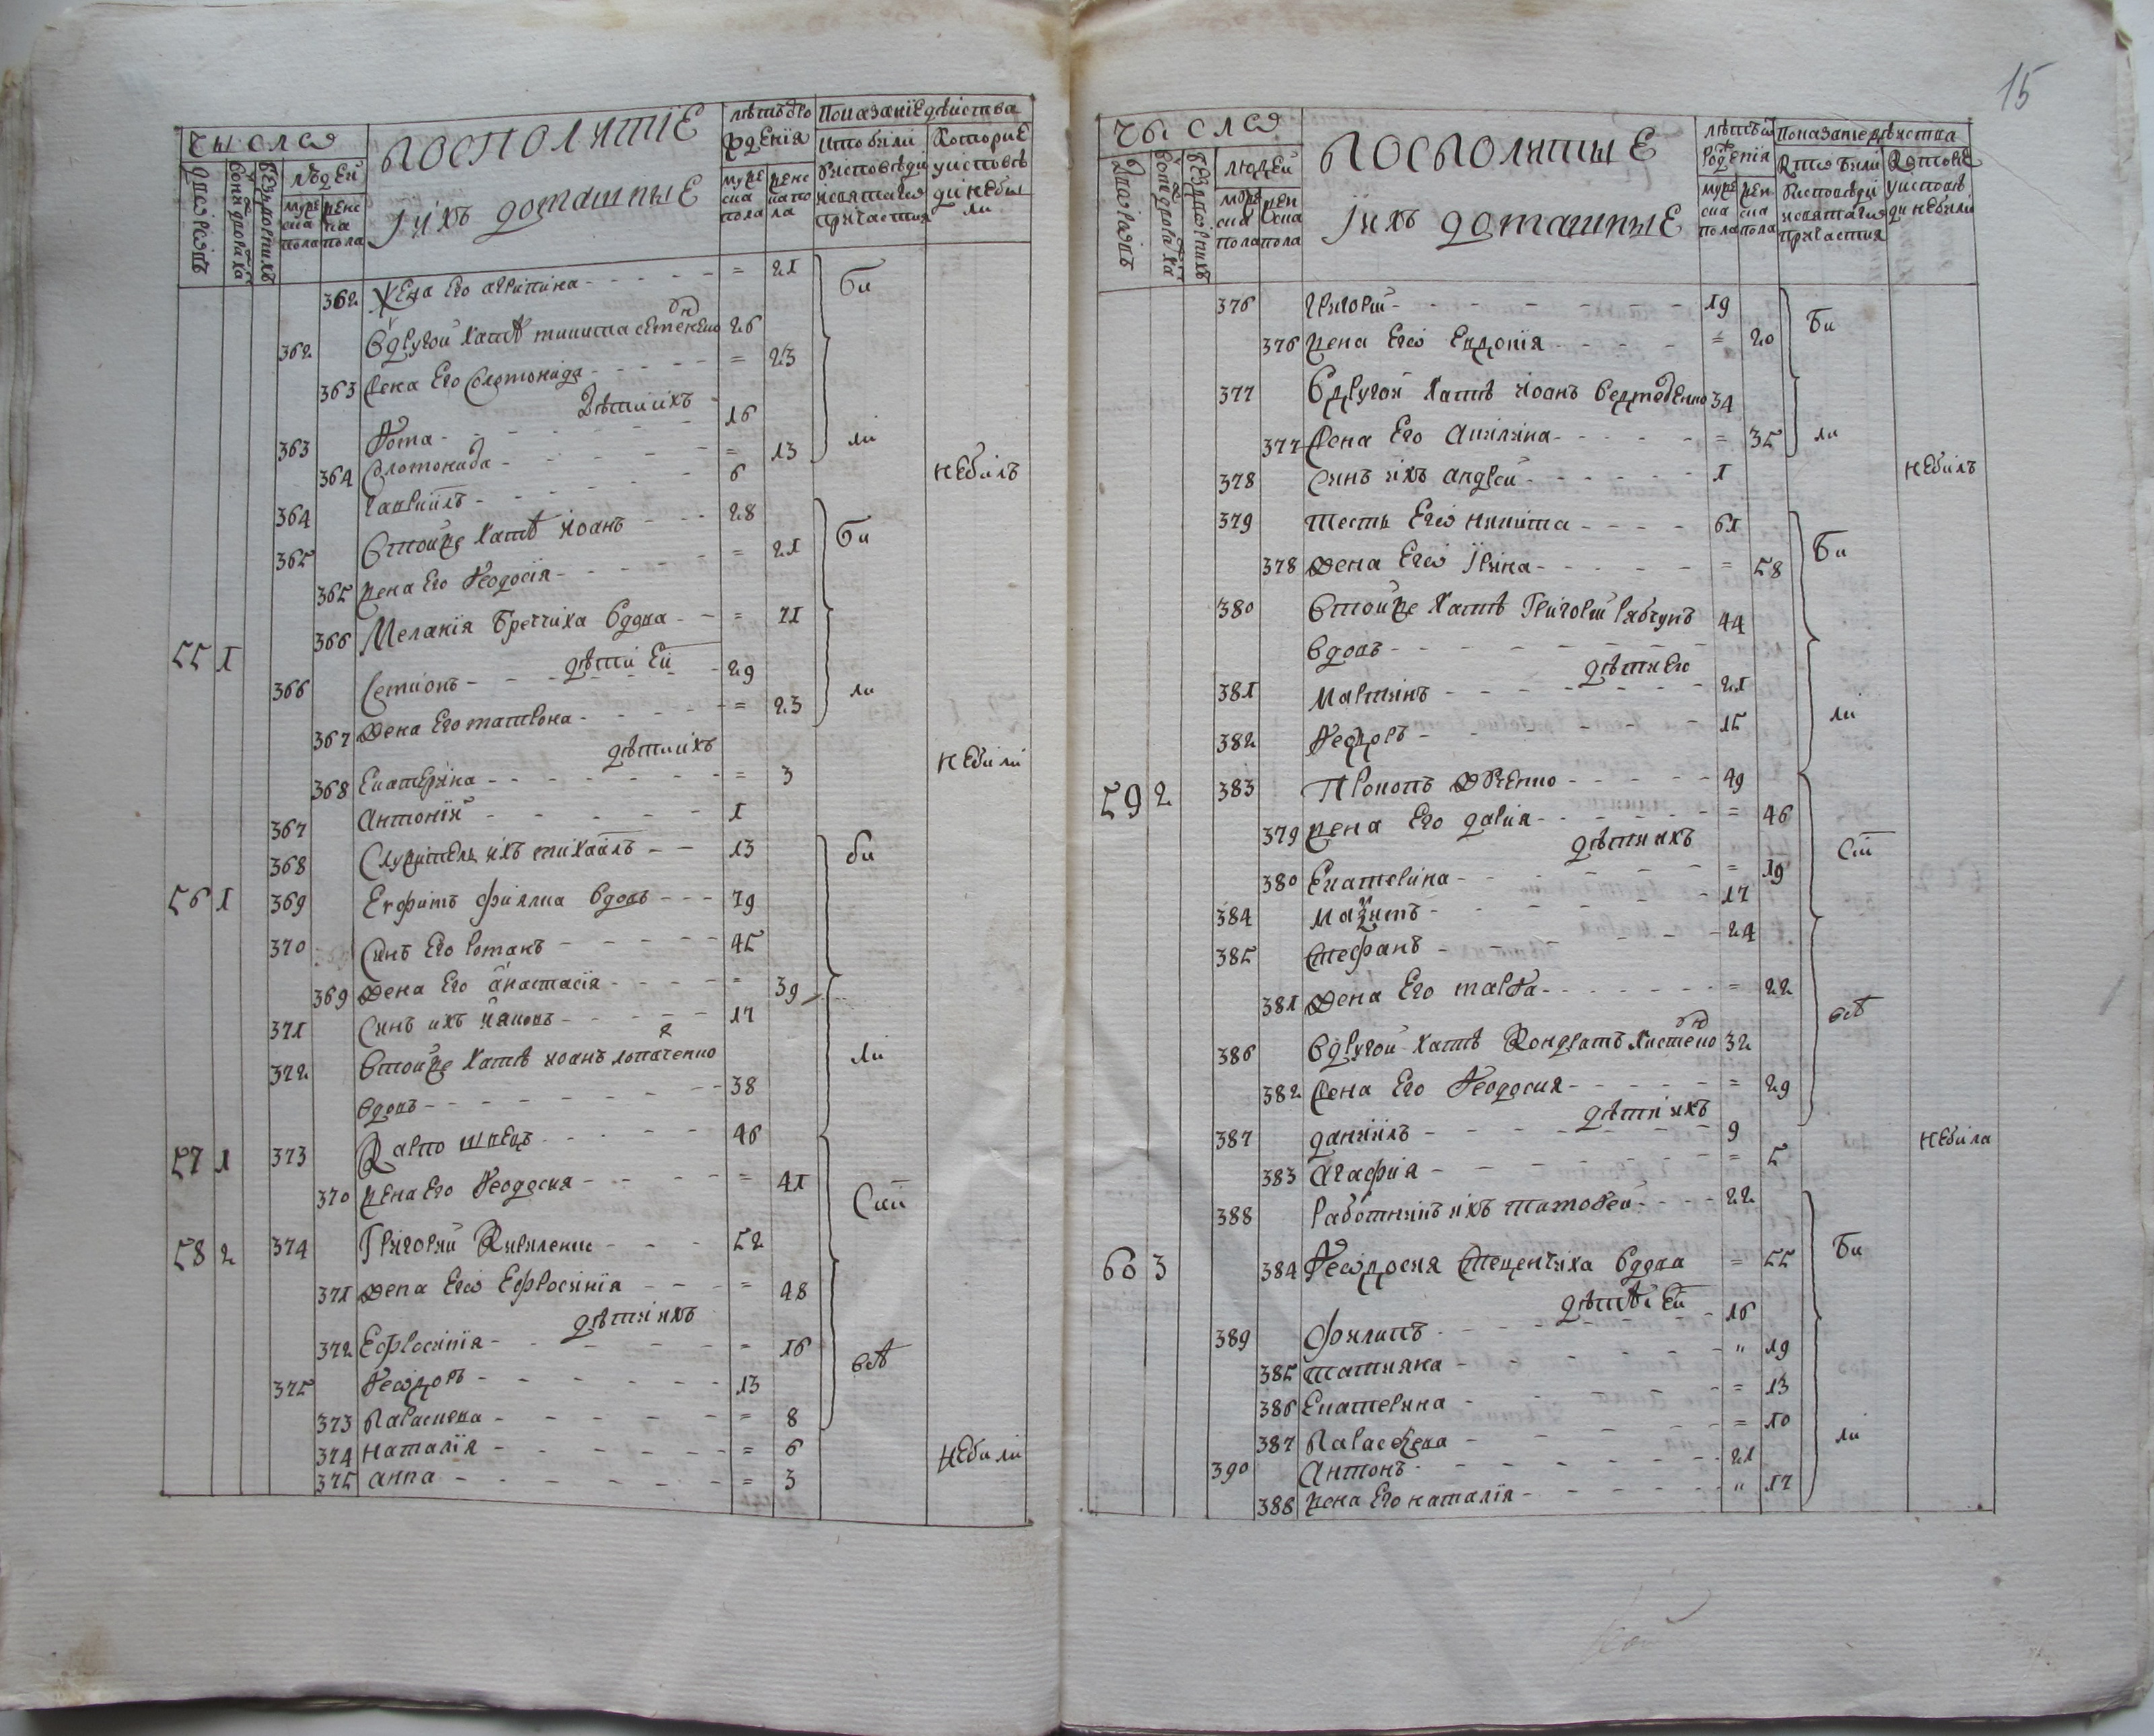 15
Чысла
Посполитіе
Іихъ домашныЕ
лѣтъ ѿ ро
жденія
Показаніе дѣиства
дворовъ
бездворнихъ
людей
муже
ска
пола
женс
ка
пола
муже
ска
пола
женс
ка по
ла
Кто били
Уисповѣди
исвятаго
причастия
Которие
уисповѣ
ди неби
ли
362 Жена Его агрипина - - - - = 21
Би
362 Вдругой хатѣ микита семененко 26
363 жена Его Соломонида - - - - = 23
Дѣти ихъ
363 Ѳома - - - - - 16
ли
364 Соломонида - - - - - = 13
364 Гавриилъ - - - - - 6
небилъ
365 Втойже хатѣ Иоанъ - - - 28
Би
365 жена Его Ѳеодосія - - - - = 21
55 1 366 Меланія Бреччиха вдова - - = 71
дѣти Ей
366 Семионъ - - - - - 29
ли
367 жена Его матрона - - - - = 23
дѣти ихъ
368 Екатерѣна - - - - - = 3
небили
367 Антоній - - - - - 1
368 Служитель ихъ михаилъ - - 13
би
56 1 369 Ефимъ филлиа вдовъ - - - 79
370 Синъ Его романъ - - - - - 45
369 жена Его анастасія - - - - = 39
371 Синъ ихъ Яковъ - - - - - 17
372 Втойже хатѣ иоанъ лопаченко
ли
вдовъ - - - - - - - 38
57 1 373 Карпо швецъ - - - - 46
370 жена Его Ѳеодосия - - - - = 41
Сіи
58 2 374 Григорий Кириленко - - - 52
371 жена Его Ефросинія - - - = 48
дѣти ихъ
372 Ефросинія - - - - - = 16
всѣ
375 Ѳеодоръ - - - - - - 13
373 Параскева - - - - - = 8
374 наталія - - - - - - = 6
небили
375 анна - - - - - - = 3
Чысла
Посполитые
Іихъ домашныЕ
лѣтъ ѿ
рожденія
Показание дѣиства
Дворовъ
бездворнихъ
людей
муже
ска
пола
жен
ска
пола
муже
ска
пола
жен
ска
пола
Кто били
Уисповѣди
исвятаго
причастия
Которіе
уисповѣ
ди небили
376 григорий - - - - - - - 19
Би
376 жена Его Евдокія - - - - = 20
377 Вдругой хатѣ иоанъ ведмеденко 34
377 жена Его Акилина - - - - = 35
ли
378 Синъ ихъ андрей - - - - - 1
небилъ
379 тесть Его никита - - - - 61
Би
378 жена Его Ірина - - - - - = 58
380 Втойже хатѣ Григорий рябчунъ 44
вдовъ - - - - - - - -
дѣти Его
381 мартинъ - - - - - - 21
ли
382 Ѳеодоръ - - - - - - 15
59 2 383 Прокопъ - - - - - 49
379 жена Его дария - - - - - = 46
дѣти ихъ
Сіи
380 Екатерина - - - - - = 19
384 Мазимъ - - - - - - 17
385 Стефанъ - - - - - - 24
381 жена Его марѳа - - - - - = 22
всѣ
386 Вдругой хатѣ Кондратъ 32
382 жена Его Ѳеодосия - - - - = 29
дѣти ихъ
387 даниилъ - - - - - - 9
небила
383 агафия - - - - - - = 5
388 работникъ ихъ тимоѳей - - - 22
60 3 384 Ѳеодосия Стеценчиха вдова = 55
Би
дѣти Ей
389 Филипъ - - - - - - 16
385 татияна - - - - - - " 19
386 Екатерина - - - - - = 13
387 Параскева - - - - - = 10
ли
390 Антонъ - - - - - - 21
388 жена Его наталія - - - - " 17